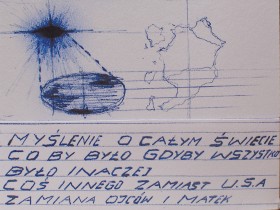 MYŚLENIE O CAŁYM ŚWIECIE
CO BY BYŁO GDYBY WSZYSTKO
BYŁO INACZEJ
COŚ INNEGO ZAMIAST U.S.A
ZAMIANA OJCÓW I MATEK